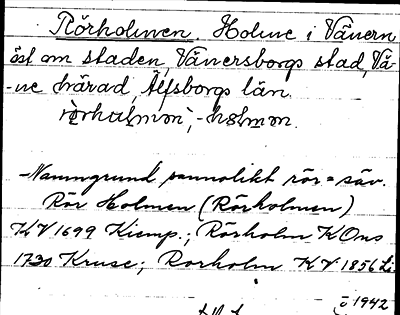 Rörholmen. Holme i Vänern
öst om staden, Vänersborgs stad, Vä-
-ne härad, Älfsborgs län.
rörhulmən, -holmən.
-Namngrund sannolikt rör = säv.
Rör Holmen (Rörholmen)
KV 1699 Kiemp.; Rörholm K Ons
1730 Kruse; Rörholm KV 1856 Li.
1942